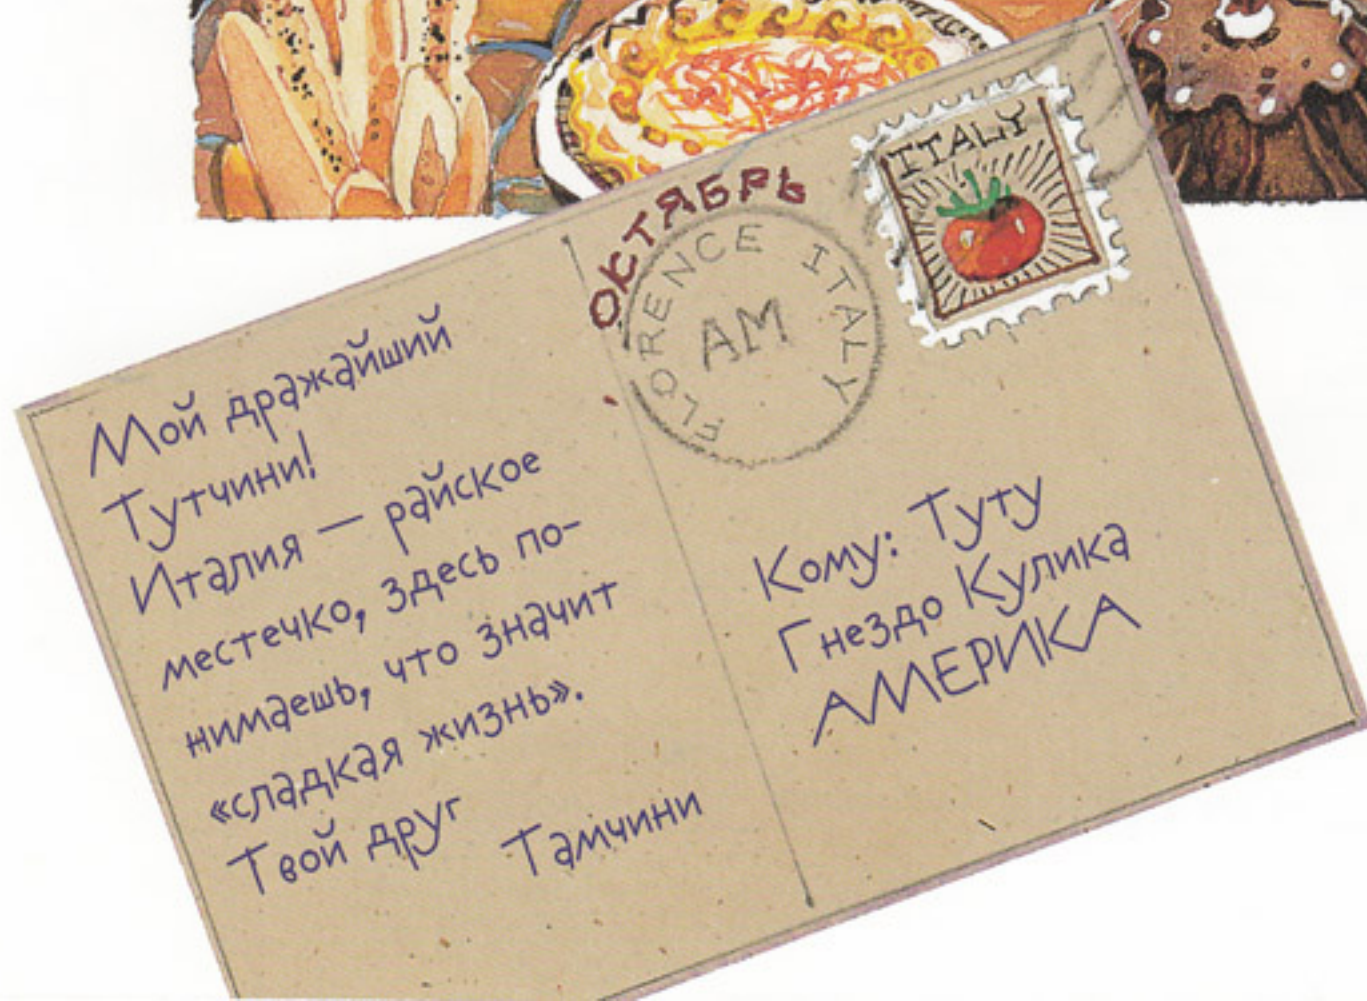 Мой дражайший
Тутчини!
Италия — райское
местечко, здесь по-
нимаешь, что значит
«сладкая жизнь».
Твой друг
Тамчини
ОКТЯБРЬ
FLORENCE ITALY
AM
ITALY
Кому: Туту
Гнездо Кулика
АМЕРИКА